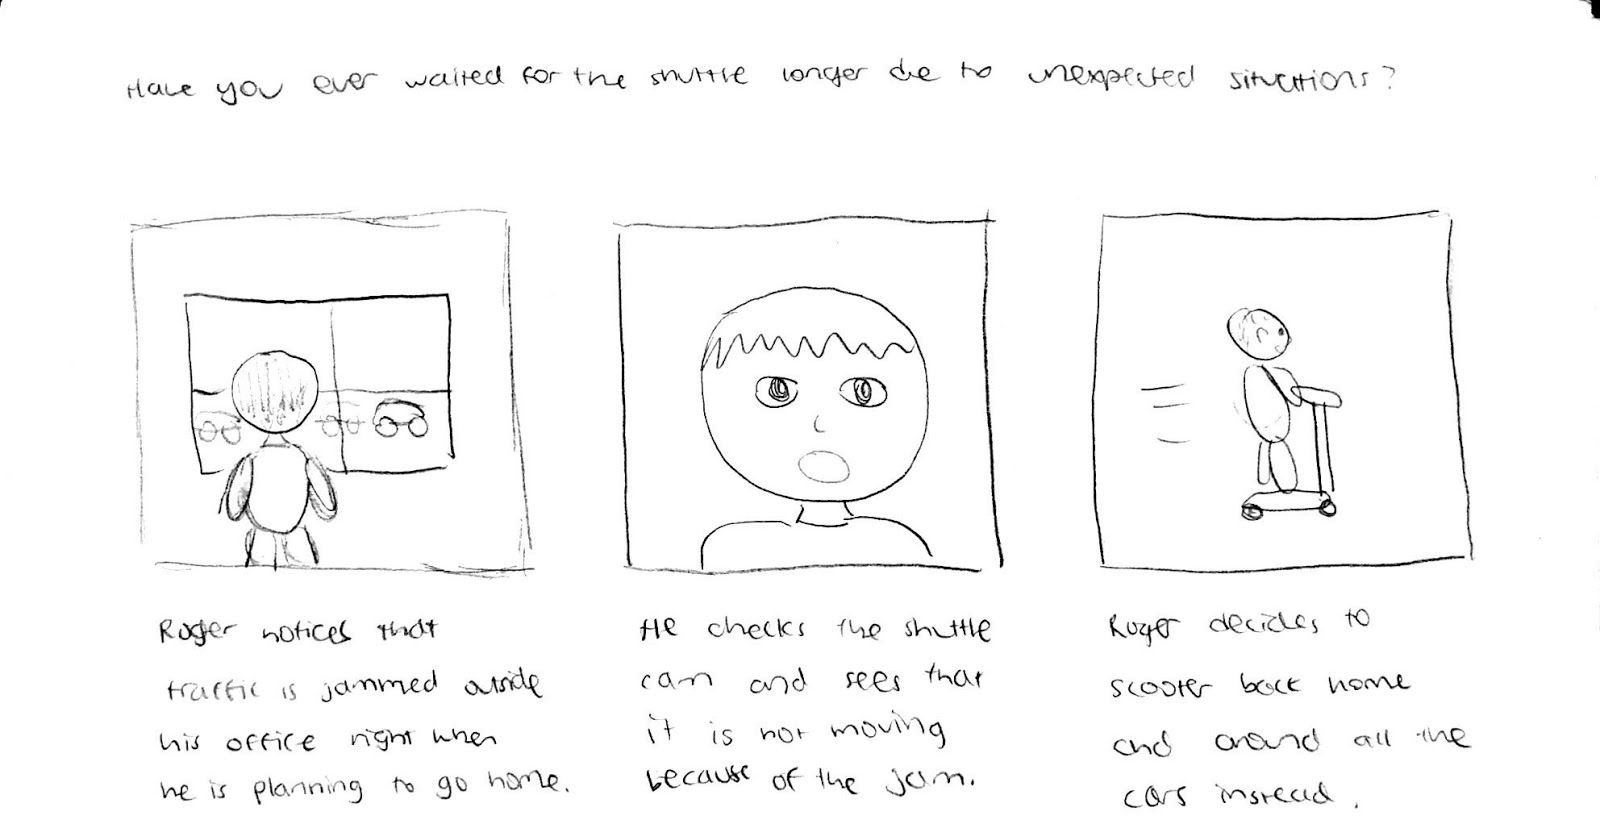 Have you ever waited for the shuttle longer due to unexpected situations?
Roger notices that
traffic is jammed outside
his office right when
he is planning to go home.
He checks the shuttle
cam and sees that
it is not moving
because of the jam.
Roger decides to
scooter back home
and around all the
cars instead.